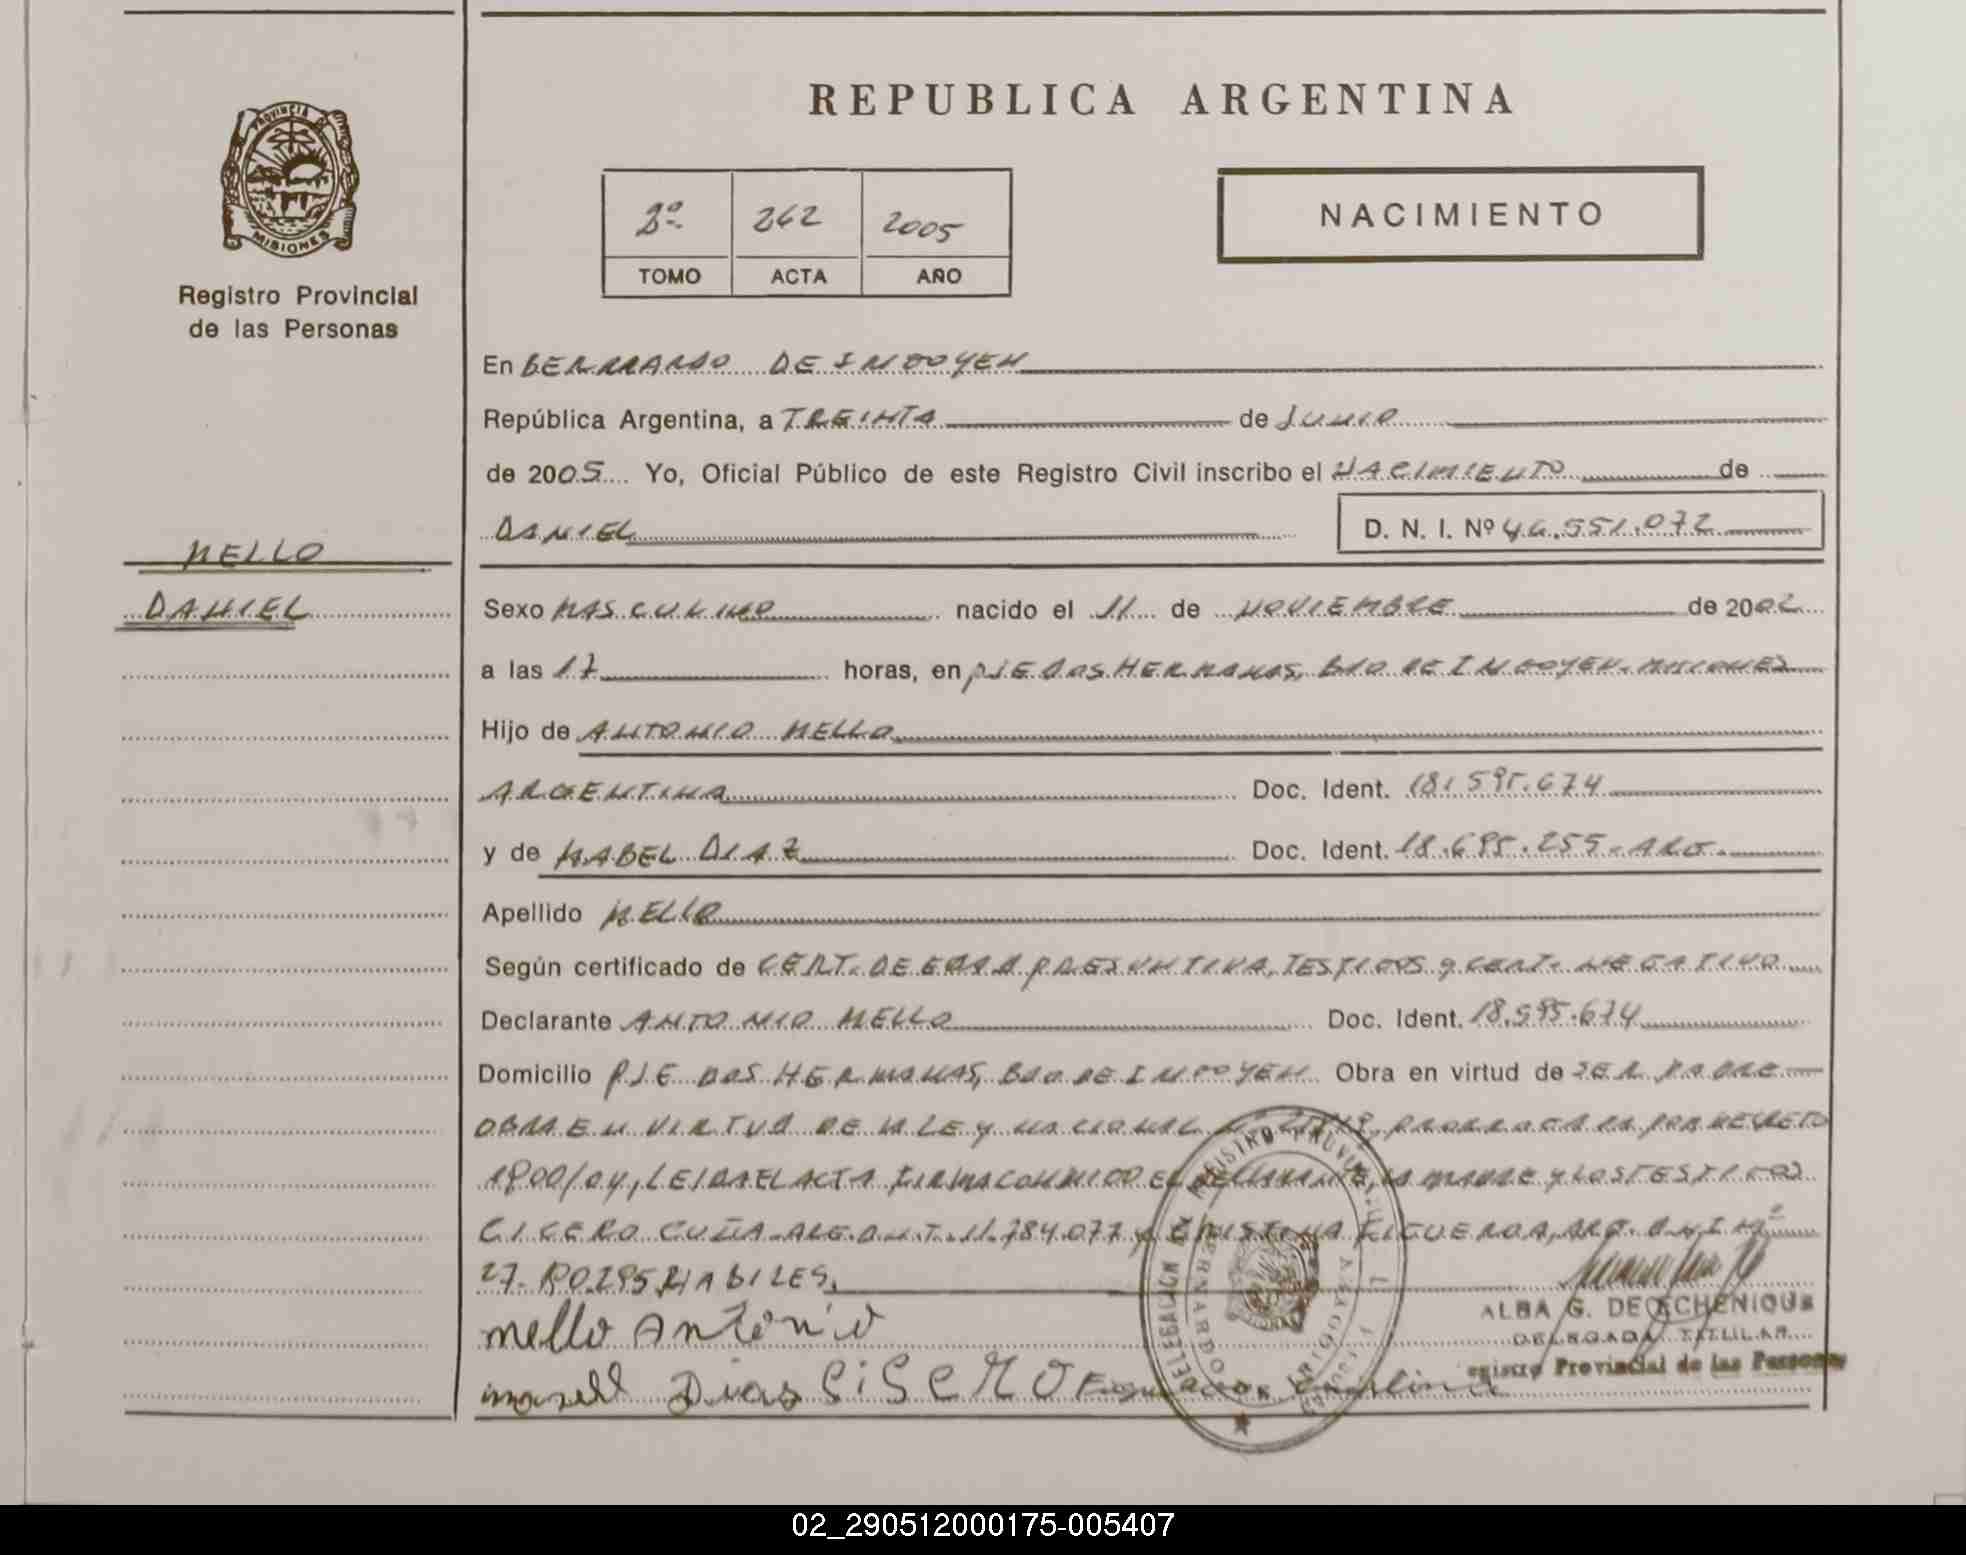 REPUBLICA ARGENTINA
PROVINCIA DE
MISIONES
Registro Provincial
de las Personas
2º 262 2005
TOMO ACTA AÑO
NACIMIENTO
En BERNARDO DE IRIGOYEN
República Argentina, a TREINTA de JUNIO
de 2005 Yo, Oficial Público de este Registro Civil inscribo el NACIMIENTO de
DANIEL D. N. I. Nº 46.551.072
MELLO
DANIEL
Sexo MASCULINO nacido el 11 de NOVIEMBRE de 2002
a las 17 horas, en PJE DOS HERMANAS, BDO DE IRIGOYEN - MISIONES
Hijo de ANTONIO MELLO
ARGENTINA Doc. Ident. 18.595.674
y de MABEL DIAZ Doc. Ident. 18.695.255 - ARG.
Apellido MELLO
Según certificado de CERT. DE EDAD PRESUNTIVA, TESTIGOS y CERT. NEGATIVO
Declarante ANTONIO MELLO Doc. Ident. 18.595.674
Domicilio PJE DOS HERMANAS, BDO DE IRIGOYEN Obra en virtud de SER PADRE
OBRA EN VIRTUD DE LA LEY NACIONAL Nº PRORROGADA POR DECRETO
1900/04, LEIDA EL ACTA FIRMA CONMIGO EL DECLARANTE, LA MADRE y LOS TESTIGOS
CICERO CUÑA - ARG. D.N.I. 11.784.077 y CRISTINA FIGUEROA, ARG. D.N.I Nº
27. HABILES.
mello Antonio
Dias CiSeRO Figueroa
ALBA G. DE ECHENIQUE
DELEGADA TITULAR
Registro Provincial de las Personas
REGISTRO PROVINCIAL
DELEGACION
BERNARDO DE IRIGOYEN
02_290512000175-005407